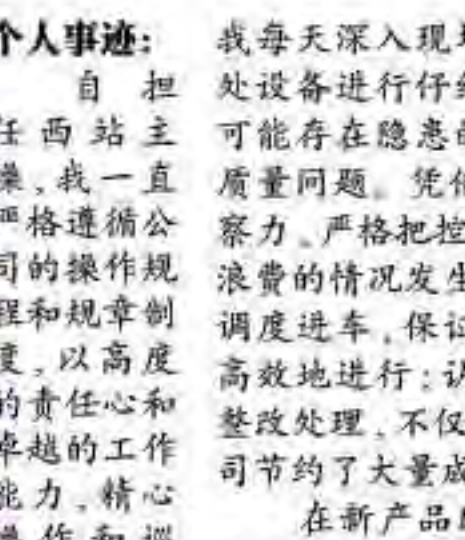 个人事迹：
自担
任西站主
操，我一直
严格遵循公
司的操作规
程和规章制
度，以高度
的责任心和
卓越的工作
能力，精心
操作和巡
我每天深入现场
处设备进行仔细
可能存在隐患的
质量问题。凭借
察力、严格把控
浪费的情况发生
调度进车，保证
高效地进行；认
整改处理，不仅
司节约了大量成
在新产品